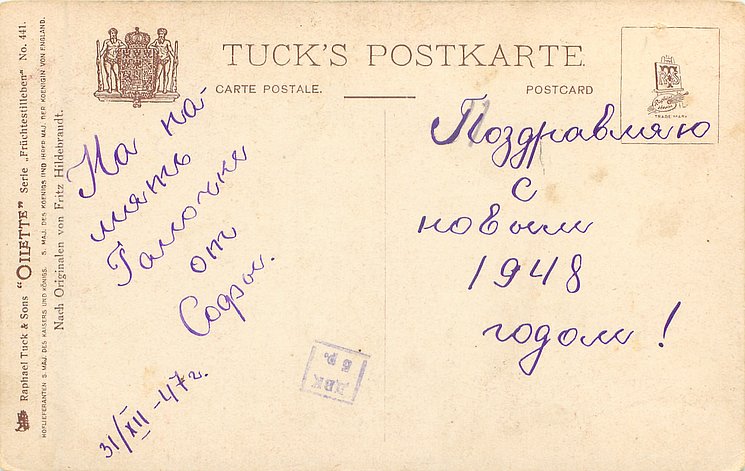 TUCK'S POSTKARTE.
CARTE POSTALE.
POSTCARD
TRADE MARK
Raphael Tuck & Sons "OILETTE" Serie „Früchtestilleben" No. 441.
HOFLIEFERANTEN S. MAJ. DES KAISERS UND KÖNIGS. S. MAJ. DES KOENIGS UND IHRER MAJ. DER KOENIGIN VON ENGLAND.
Nach Originalen von Fritz Hildebrandt.
На па-
мять
Галочке
от
Софы.
31/XII-47г.
Поздравляю
с
новым
1948
годом!
ДВК
5 р.